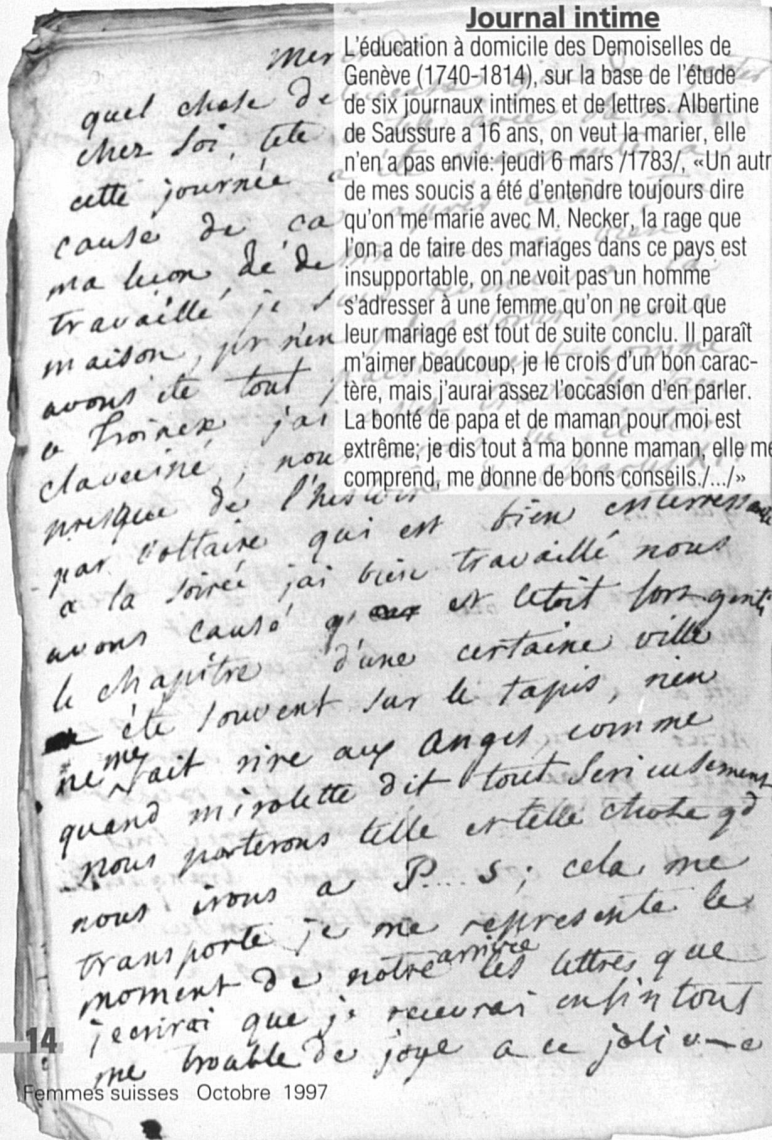 Journal intime
L'éducation à domicile des Demoiselles de
Genève (1740-1814), sur la base de l'étude
de six journaux intimes et de lettres. Albertine
de Saussure a 16 ans, on veut la marier, elle
n'en a pas envie: jeudi 6 mars /1783/, «Un autr
de mes soucis a été d'entendre toujours dire
qu'on me marie avec M. Necker, la rage que
l'on a de faire des mariages dans ce pays est
insupportable, on ne voit pas un homme
s'adresser à une femme qu'on ne croit que
leur mariage est tout de suite conclu. Il paraît
m'aimer beaucoup, je le crois d'un bon carac-
tère, mais j'aurai assez l'occasion d'en parler.
La bonté de papa et de maman pour moi est
extrême; je dis tout à ma bonne maman, elle me
comprend, me donne de bons conseils./.../»
Mer
quel chose de
chez soi, tete
cette journée
cause de ca
ma lecon de de
travaillé, je
maison,
avons ete tout
a Troinex jai
claveciné, nou
presque de l'histoire
par Voltaire qui est bien interressante
a la soirée jai bien travaillé nous
avons causé et cetoit fort gentil
le chapitre d'une certaine ville
a été souvent sur le tapis, rien
ne me fait rire aux anges comme
quand mirolette dit tout serieusement
nous porterons telle et telle chose qd
nous irons a P....s; cela me
transporte je me represente le
moment de notre arrivée les lettres que
jecrirai que je recevrai enfin tout
me trouble de joye a ce joli
14
Femmes suisses Octobre 1997